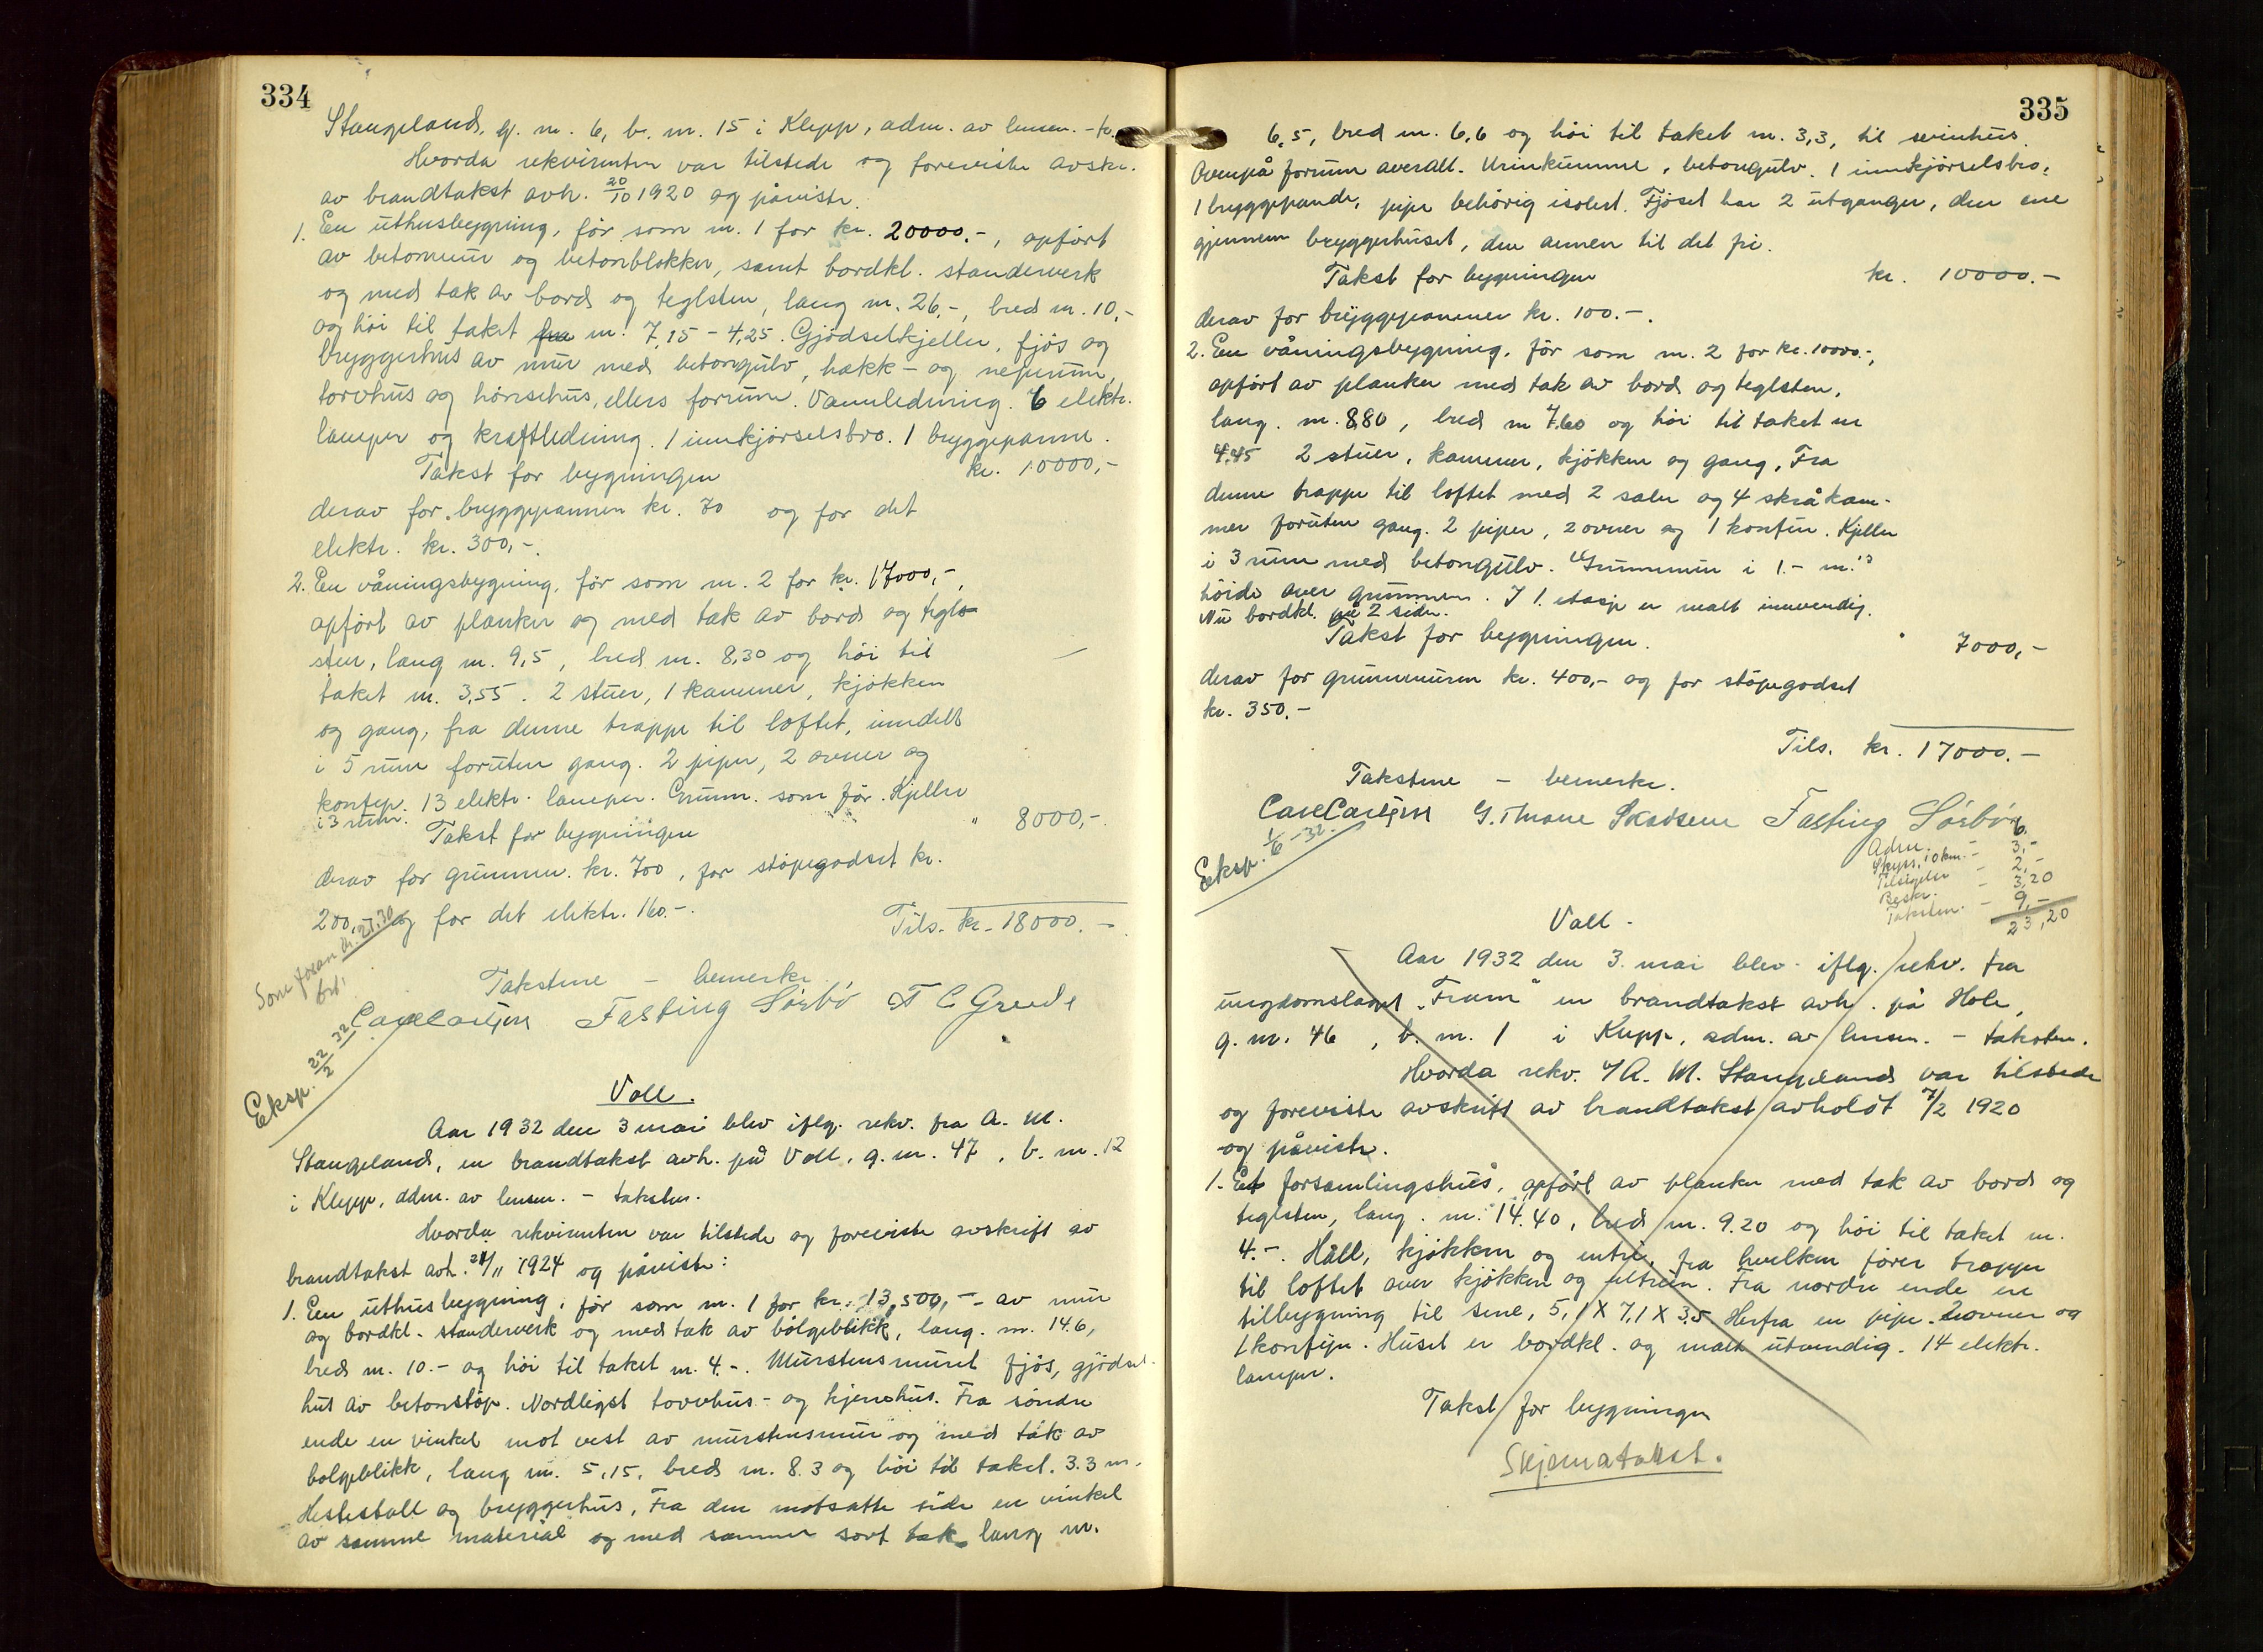 334
Stangeland, g. nr. 6, br. nr. 15 i Klepp, adm. av lensm. - tr.
Hvorda rekvirenten var tilstede og foreviste avskr.
av brandtakst avh. 20/10 1920 og påviste.
1. En uthusbygning, før som nr. 1 for kr. 20000.-, opført
av betonmur og betonblokker, samt bordkl. standerverk
og med tak av bord og teglsten, lang m. 26,-, bred m. 10,-
og höi til taket m. 7,15 - 4,25. Gjödselkjeller, fjös og
bryggerhus av mur med betongulv, hakk- og neperum,
torvhus og hönsehus, ellers forrum. Vannledning. 6 elektr.
lamper og kraftledning. 1 innkjörselsbro. 1 bryggepanne.
Takst for bygningen kr. 10000,-
derav for bryggepannen kr. 70 og for det
elektr. kr. 300,-.
2. En våningsbygning, før som nr. 2 for kr. 17000,-,
opført av planker og med tak av bord og tegl-
sten, lang m. 9,5, bred m. 8,30 og höi til
taket m. 3,55. 2 stuer, 1 kammer, kjökken
og gang, fra denne trappe til loftet, inndelt
i 5 rum foruten gang. 2 piper, 2 ovner og
konfyr. 13 elektr. lamper. Grunm. som før. Kjeller
i 3 rum.
Takst for bygningen " 8000,-
derav for grunmur. kr. 700, for stöpegodset kr.
200,- og for det elektr. 160.-.
Tils. kr. 18000.-
Som foran kr. 27.30
bet.
Takstene - bemerkr.
Carl Carlsen Fasting Sörbö T C Grude
Eksp. 22/2 32
Voll.
Aar 1932 den 3 mai blev iflg. rekv. fra A. M.
Stangeland, en brandtakst avh. på Voll, g. nr. 47, b. nr. 12
i Klepp, adm. av lensm. - takstm.
Hvorda rekvirenten var tilstede og foreviste avskrift av
brandtakst avh. 1924 og påviste:
1. En uthusbygning, før som nr. 1 for kr. 13,500,- - av mur
og bordkl. standerverk og med tak av bölgeblikk, lang. m. 14.6,
bred m. 10.- og höi til taket m. 4.-. Murstensmuret fjös, gjödsel-
hus av betonstöp. Nordligst torvhus- og hjemhus. Fra söndre
ende en vinkel mot vest av murstensmur og med tak av
bolgeblikk, lang m. 5,15, bred m. 8.3 og höi til taket. 3.3 m.
Hestestall og bryggerhus. Fra den motsatte side en vinkel
av samme material og med samme sort tak lang m.
335
6,5, bred m. 6,6 og höi til taket m. 3,3, til svinhus.
Ovenpå forrum overalt. Urinkumme, betongulv. 1 innkjörselsbro,
1 bryggepande, pipe behörig isolert. Fjöset har 2 utganger, den ene
gjennem bryggerhuset, den annen til det fri.
Takst for bygningen kr. 10000.-
derav for bryggepannen kr. 100.-.
2. En våningsbygning, før som nr. 2 for kr. 10000.-,
opfört av planker med tak av bord og teglsten,
lang. m. 8,80, bred m 7.60 og höi til taket m
4.45 2 stuer, kammer, kjökken og gang, Fra
denne trappe til loftet med 2 saler og 4 skråkam-
mer foruten gang. 2 piper, 2 ovner og 1 konfur. Kjeller
i 3 rum med betongulv. Grunnmur i 1.- m.s
höide over grunnen. I 1. etasje er malt innvendig.
Nu bordkl. på 2 sider.
Takst for bygningen. " 7000,-
derav for grunnmuren kr. 400,- og for stöpegodset
kr. 350.-
Tils. kr. 17000.-
Takstene - bemerkr.
Carl Carlsen G. Thrane Skadsem Fasting Sörbö
Eksp. 1/6 -32.
Adm. - 6.
Skyss. 10 km. - 3,-
Tilsigelse - 2,-
Beskr. - 3,20
Takstm. - 9,-
23,20
Voll.
Aar 1932 den 3. mai blev iflg. rekv. fra
ungdomslaget "Fram" en brandtakst avh. på Hole,
g. nr. 46, b. nr. 1 i Kepp, adm. av lensm. - takstm.
Hvorda rekv. v/ A. M. Stangeland var tilstede
og foreviste avskrift av brandtakst avholdt 7/2 1920
og påviste.
1. Et forsamlingshus, opfört av planker med tak av bord og
teglsten, lang. m. 14.40, bred m. 9.20 og höi til taket m.
4.-. Hall, kjökken og entri, fra hvilken förer trappe
til loftet over kjökken og entrien. Fra nordre ende en
tilbygning til sene, 5,1 X 7,1 X 3,5 Herfra en pipe. 2 ovner og
1 konfyr. Huset er bordkl. og malt utvendig. 14 elektr.
lamper.
Takst for bygningen
Skjematakst.